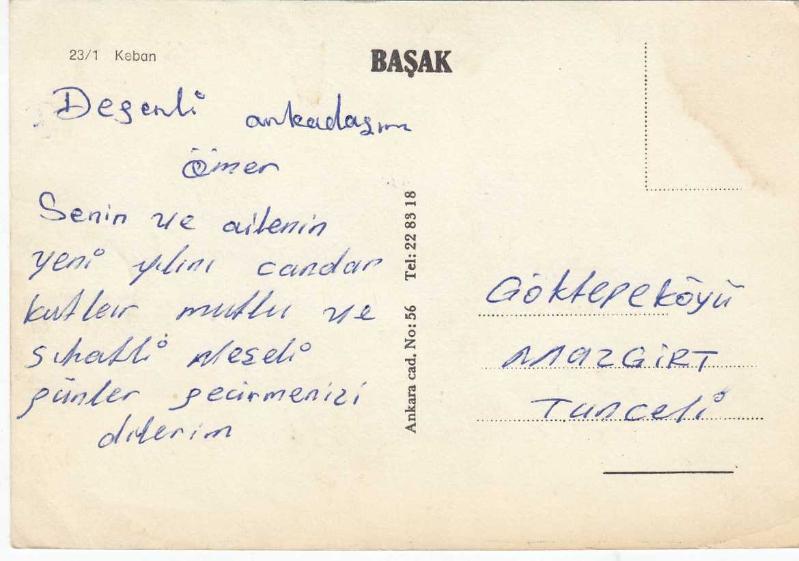 23/1 Keban
BAŞAK
Değerli arkadaşım
Ömer
Senin ve ailenin
yeni yılını candan
kutlar mutlu ve
sıhatli neşeli
günler geçirmenizi
dilerim
Ankara cad. No: 56 Tel: 22 83 18
Göktepeköyü
MAZGİRT
Tunceli